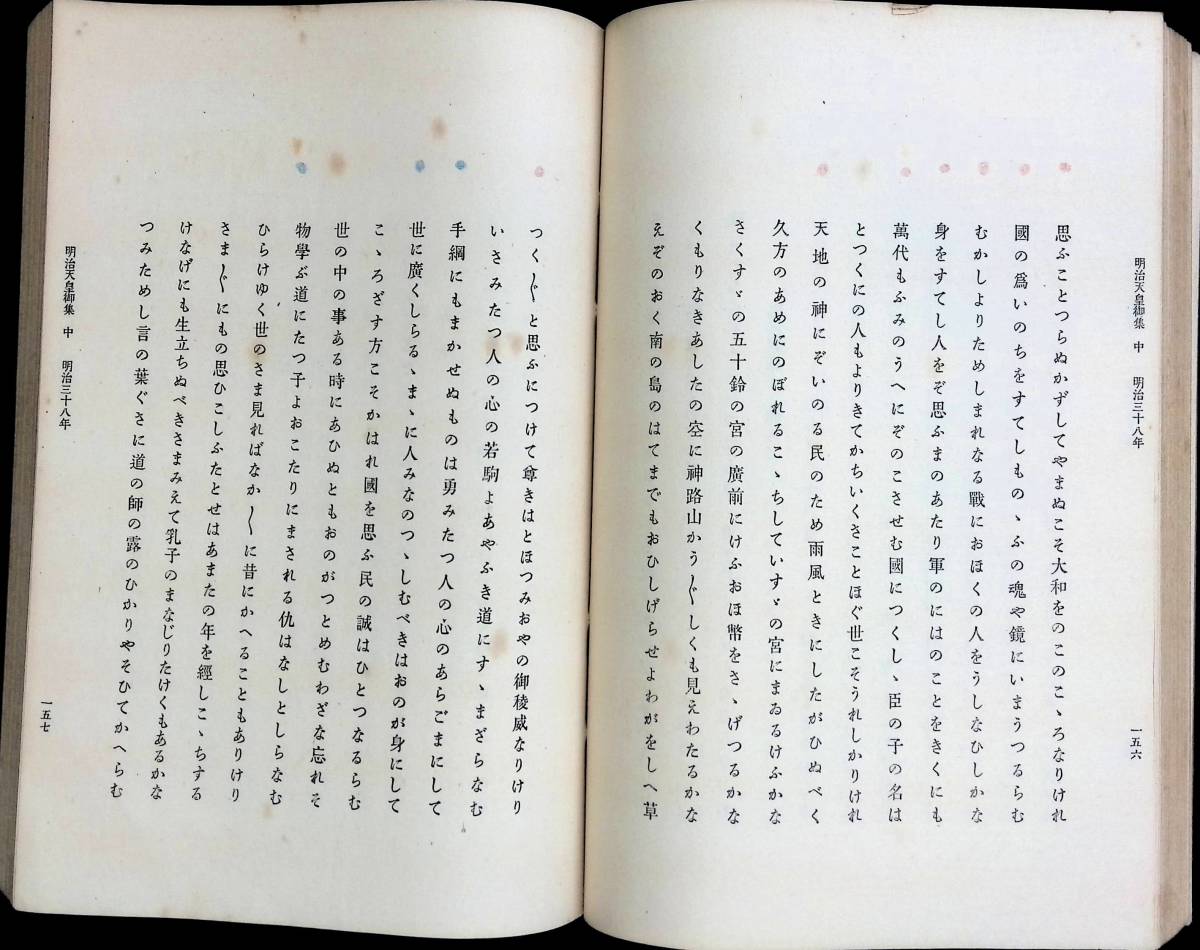 明治天皇御集 中 明治三十八年
一五六
思ふことつらぬかずしてやまぬこそ大和をのこのこゝろなりけれ
國の爲いのちをすてしものゝふの魂や鏡にいまうつるらむ
むかしよりためしまれなる戰におほくの人をうしなひしかな
身をすてし人をぞ思ふまのあたり軍のにはのことをきくにも
萬代もふみのうへにぞのこさせむ國につくしゝ臣の子の名は
とつくにの人もよりきてかちいくさことほぐ世こそうれしかりけれ
天地の神にぞいのる民のため雨風ときにしたがひぬべく
久方のあめにのぼれるこゝちしていすゞの宮にまゐるけふかな
さくすゞの五十鈴の宮の廣前にけふおほ幣をさゝげつるかな
くもりなきあしたの空に神路山かう〴〵しくも見えわたるかな
えぞのおく南の島のはてまでもおひしげらせよわがをしへ草
つく〴〵と思ふにつけて尊きはとほつみおやの御稜威なりけり
いさみたつ人の心の若駒よあやふき道にすゝまざらなむ
手綱にもまかせぬものは勇みたつ人の心のあらごまにして
世に廣くしらるゝまゝに人みなのつゝしむべきはおのが身にして
こゝろざす方こそかはれ國を思ふ民の誠はひとつなるらむ
世の中の事ある時にあひぬともおのがつとめむわざな忘れそ
物學ぶ道にたつ子よおこたりにまされる仇はなしとしらなむ
ひらけゆく世のさま見ればなか〳〵に昔にかへることもありけり
さま〴〵にもの思ひこしふたとせはあまたの年を經しこゝちする
けなげにも生立ちぬべきさまみえて乳子のまなじりたけくもあるかな
つみためし言の葉ぐさに道の師の露のひかりやそひてかへらむ
明治天皇御集 中 明治三十八年
一五七